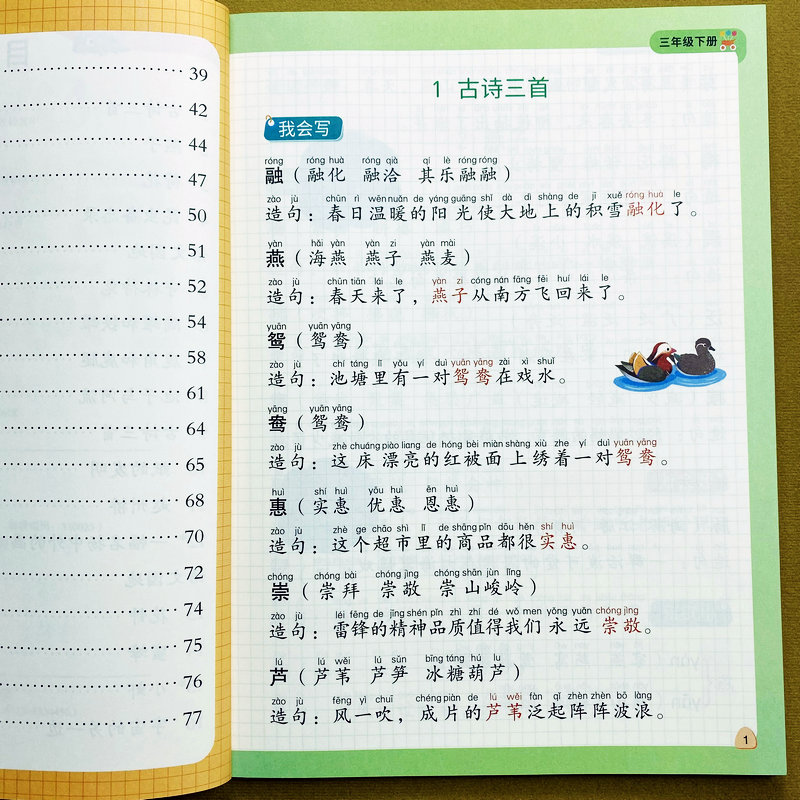 39
42
44
47
50
51
52
54
58
61
64
65
68
70
72
74
75
76
77
三年级下册
1 古诗三首
我会写
róng róng huà róng qià qí lè róng róng
融（融化 融洽 其乐融融）
zào jù chūn rì wēn nuǎn de yáng guāng shǐ dà dì shàng de jī xuě róng huà le
造句：春日温暖的阳光使大地上的积雪融化了。
yàn hǎi yàn yàn zi yàn mài
燕（海燕 燕子 燕麦）
zào jù chūn tiān lái le yàn zi cóng nán fāng fēi huí lái le
造句：春天来了，燕子从南方飞回来了。
yuān yuān yāng
鸳（鸳鸯）
zào jù chí táng lǐ yǒu yí duì yuān yāng zài xì shuǐ
造句：池塘里有一对鸳鸯在戏水。
yāng yuān yāng
鸯（鸳鸯）
zào jù zhè chuáng piào liang de hóng bèi miàn shàng xiù zhe yí duì yuān yāng
造句：这床漂亮的红被面上绣着一对鸳鸯。
huì shí huì yōu huì ēn huì
惠（实惠 优惠 恩惠）
zào jù zhè ge chāo shì lǐ de shāng pǐn dōu hěn shí huì
造句：这个超市里的商品都很实惠。
chóng chóng bài chóng jìng chóng shān jùn lǐng
崇（崇拜 崇敬 崇山峻岭）
zào jù léi fēng de jīng shén pǐn zhì zhí dé wǒ men yǒng yuǎn chóng jìng
造句：雷锋的精神品质值得我们永远崇敬。
lú lú wěi lú sǔn bīng táng hú lu
芦（芦苇 芦笋 冰糖葫芦）
zào jù fēng yì chuī chéng piàn de lú wěi fàn qǐ zhèn zhèn bō làng
造句：风一吹，成片的芦苇泛起阵阵波浪。
1